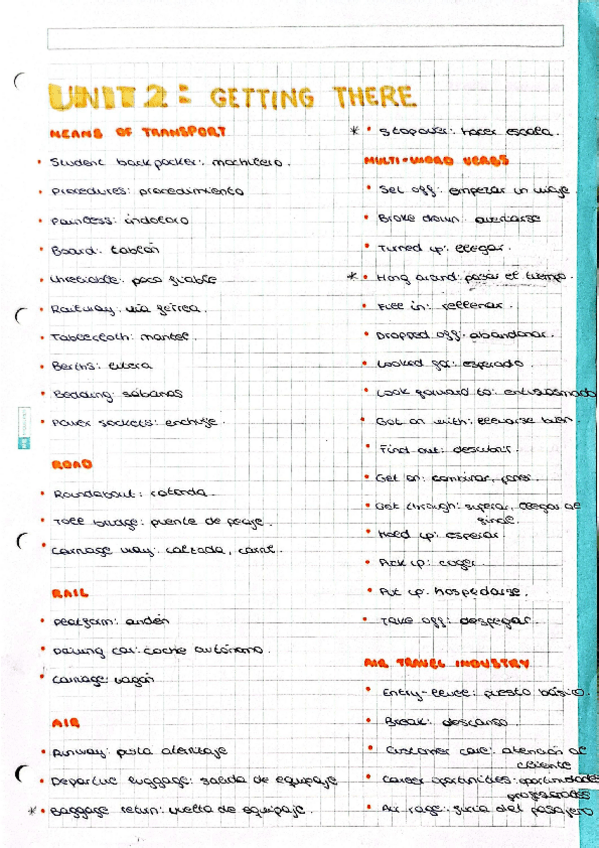 UNIT 2: GETTING THERE
MEANS OF TRANSPORT
• Student backpacker: mochilero.
• Procedures: procedimiento
• Painless: indoloro
• Board: tablón
• Unreliable: poco fiable
• Railway: vía férrea.
• Tablecloth: mantel.
• Berths: litera
• Bedding: sábanas
• Power sockets: enchufe.
ROAD
• Roundabout: rotonda.
• Toll bridge: puente de peaje.
• Carriage way: calzada, carril.
RAIL
• Platform: andén
• Dining car: coche autónomo.
• Carriage: vagón
AIR
• Runway: pista aterrizaje
• Departure luggage: salida de equipaje
* • Baggage return: vuelta de equipaje.
* • Stopover: hacer escala.
MULTI-WORD VERBS
• Set off: empezar un viaje.
• Broke down: averiarse
• Turned up: llegar.
* • Hang around: pasar el tiempo.
• Fill in: rellenar.
• Dropped off: abandonar.
• Looked for: esperado.
• Look forward to: entusiasmado
• Got on with: llevarse bien.
• Find out: descubrir.
• Get on: combinar,
• Get through: superar, llegar al
final.
• Held up: esperar.
• Pick up: coger.
• Put up: hospedarse.
• Take off: despegar.
AIR TRAVEL INDUSTRY
• Entry-level: puesto básico.
• Break: descanso
• Customer care: atención al
cliente
• Career oportunities: oportunidades
profesionales
• Air rage: furia del pasajero